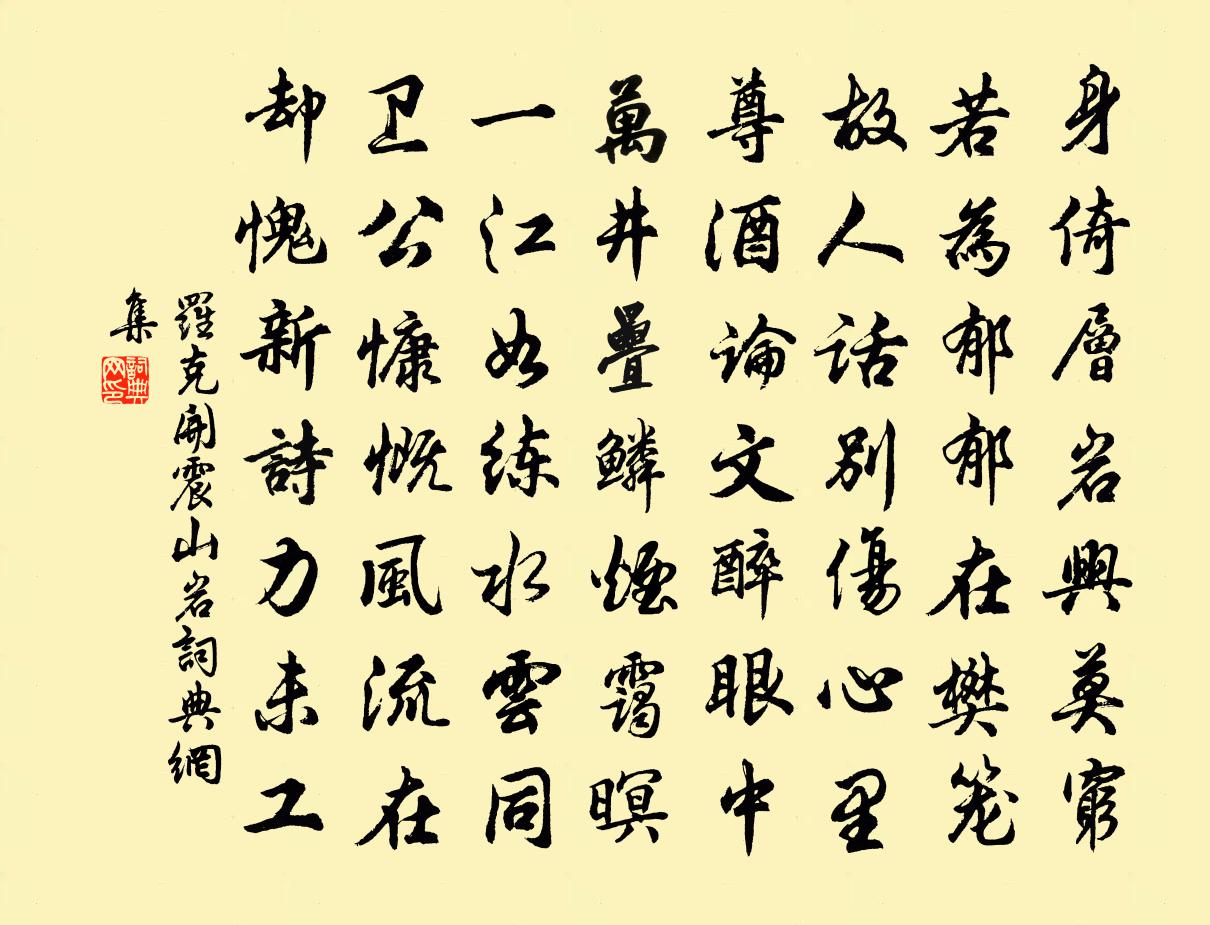 身倚層岩興莫窮
若為郁郁在樊笼
故人話別傷心里
尊酒論文醉眼中
萬井疊鱗煙靄暝
一江如练水雲同
卫公慷慨風流在
却愧新詩力未工
羅克開震山岩詞典網
集
詞典
网印